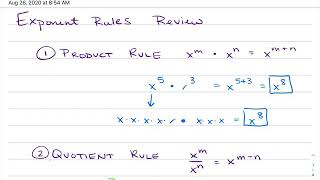 Aug 26, 2020 at 8:54 AM
Exponent Rules Review
① PRODUCT RULE x^m · x^n = x^{m+n}
x^5 · ^3 = x^{5+3} = x^8
x·x·x·x· · x·x·x = x^8
② QUOTIENT RULE x^m/x^n = x^{m-n}